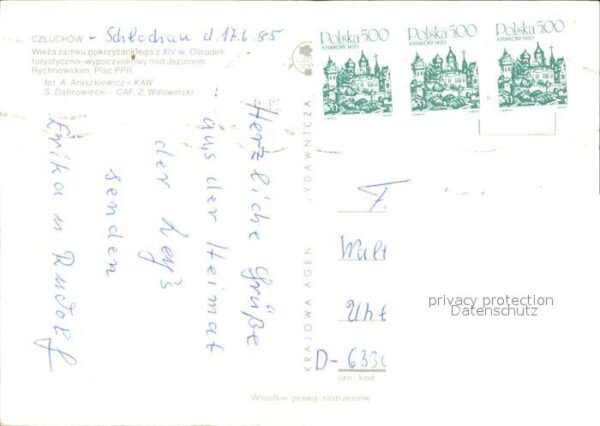 CZŁUCHÓW - Schlochau d. 17.6.85
Wieża zamku pokrzyżackiego z XIV w. Ośrodek
turystyczno-wypoczynkowy nad Jeziorem
Rychnowskim. Plac PPR
fot. A. Araszkiewicz – KAW
S. Dąbrowiecki – CAF, Z. Wdowiński
Herzliche Grüße
aus der Heimat
der Ley's
senden
Erika u Rudolf
KRAJOWA AGEN
YDAWNICZA
Polska 500
KRAKÓW 1493
Polska 500
KRAKÓW 1493
Polska 500
KRAKÓW 1493
F.
Walt
Uht
D-633
ozn. kod
privacy protection
Datenschutz
Wszelkie prawa zastrzeżone